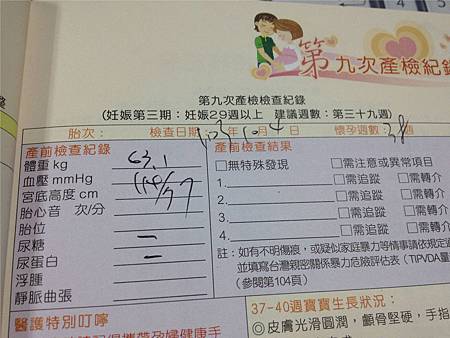 第九次產檢紀錄
第九次產檢檢查紀錄
(妊娠第三期：妊娠29週以上 建議週數：第三十九週)
胎次： 檢查日期 年 月 日 懷孕週數：38 週
產前檢查紀錄
體重 kg 63.1
血壓 mmHg
宮底高度 cm
胎心音 次/分
胎位
尿糖 —
尿蛋白 —
浮腫
靜脈曲張
產前檢查結果
□無特殊發現 □需注意或異常項目
1. □需追蹤 □需轉介
2. □需追蹤 □需轉介
3. □需追蹤 □需轉介
4. □需追蹤 □需轉介
註：如有不明傷痕，或疑似家庭暴力等情事請依規定通
並填寫台灣親密關係暴力危險評估表(TIPVDA量
(參閱第104頁)
醫護特別叮嚀
37-40週寶寶生長狀況：
◎皮膚光滑圓潤，顱骨堅硬，手指